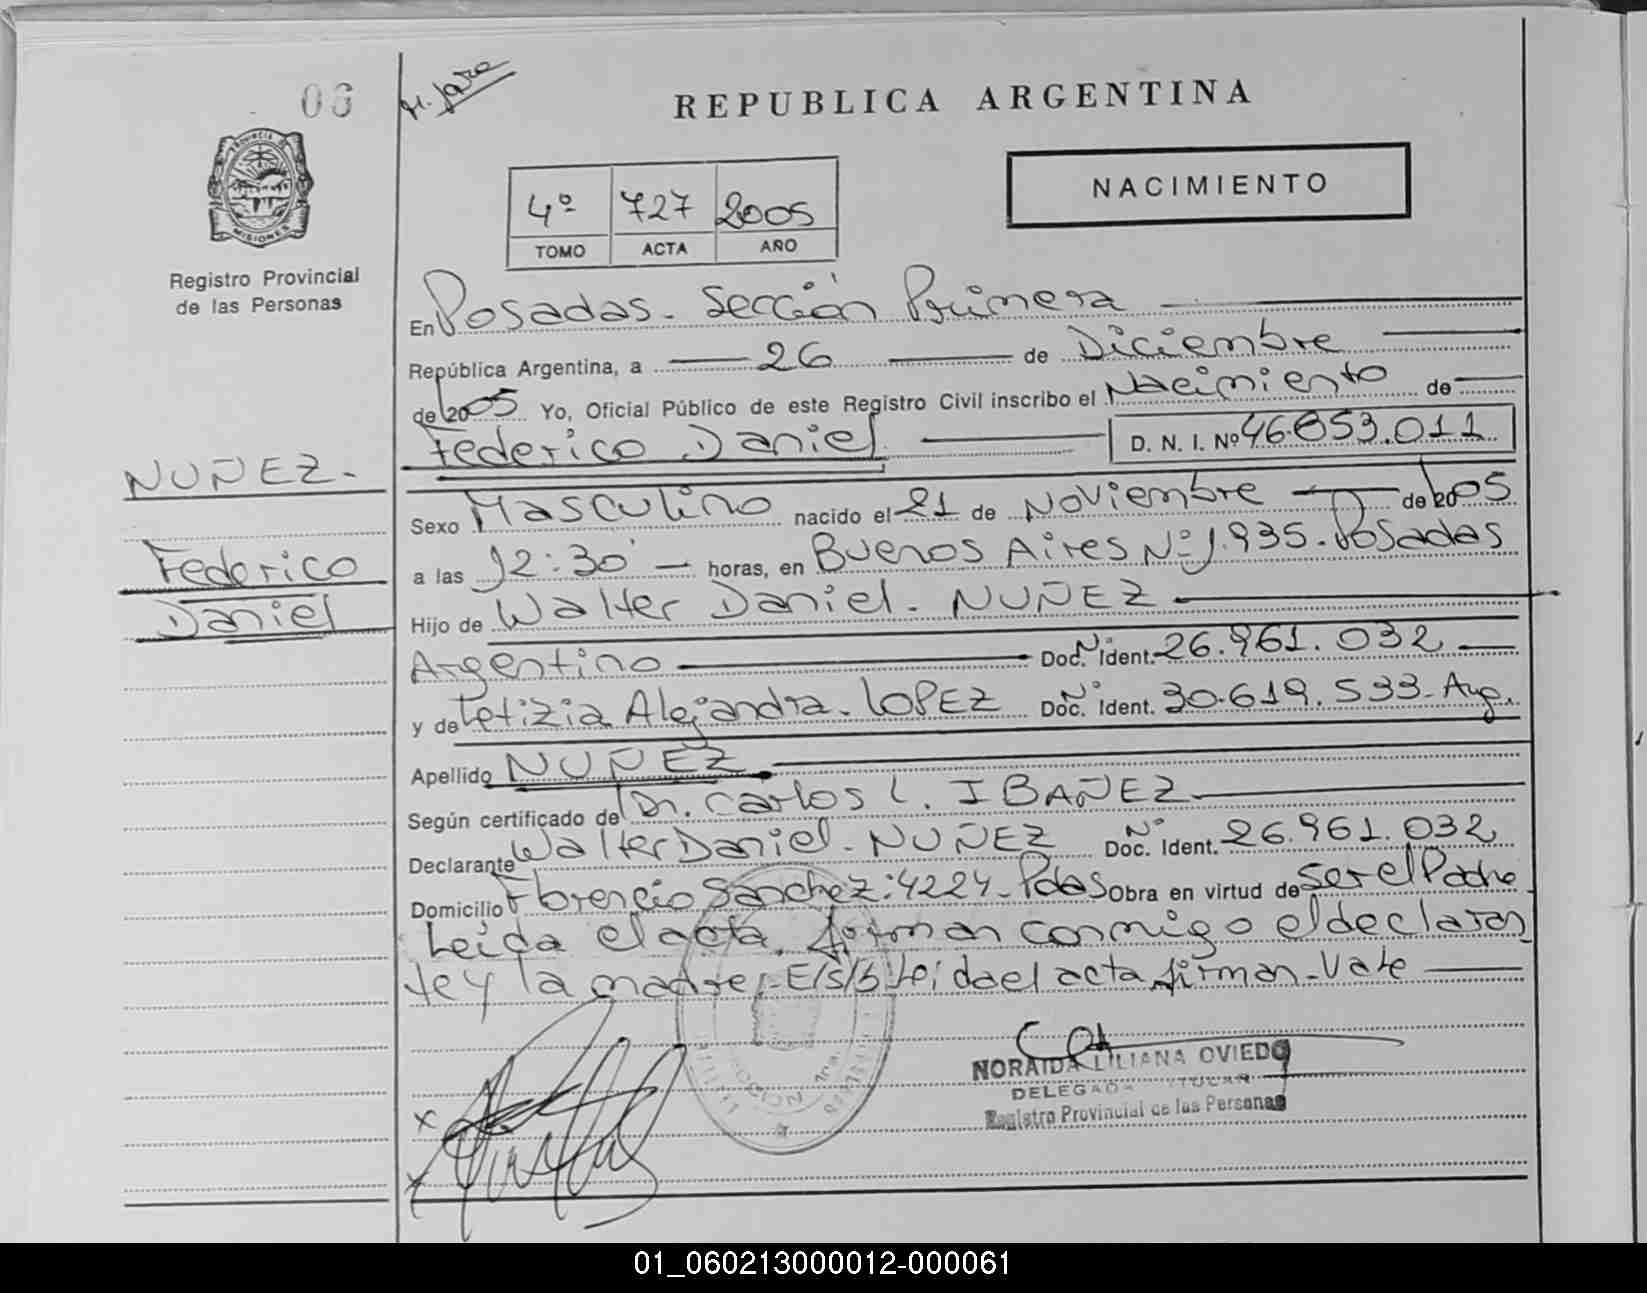 06
REPUBLICA ARGENTINA
PROVINCIA DE
MISIONES
Registro Provincial
de las Personas
4º 727 2005
TOMO ACTA AÑO
NACIMIENTO
En Posadas. Sección Primera
República Argentina, a 26 de Diciembre
de 2005 Yo, Oficial Público de este Registro Civil inscribo el Nacimiento de
Federico Daniel D. N. I. Nº 46.853.011
NUÑEZ.
Federico
Daniel
Sexo Masculino nacido el 21 de Noviembre de 2005
a las 12:30 horas, en Buenos Aires Nº 1.935. Posadas
Hijo de Walter Daniel. NUÑEZ
Argentino Doc. Nº Ident. 26.961.032
y de Letizia Alejandra. LOPEZ Doc. Nº Ident. 30.619.533. Arg.
Apellido NUÑEZ
Según certificado de Dr. Carlos L. IBAÑEZ
Declarante Walter Daniel. NUÑEZ Doc. Nº Ident. 26.961.032
Domicilio Florencio Sanchez: 4224. Pdas Obra en virtud de ser el Padre
Leida el acta, firman conmigo el declaran
te y la madre. E/s/b: Leida el acta firman. Vale
NORAIDA LILIANA OVIEDO
DELEGADA TITULAR
Registro Provincial de las Personas
x
x
01_060213000012-000061